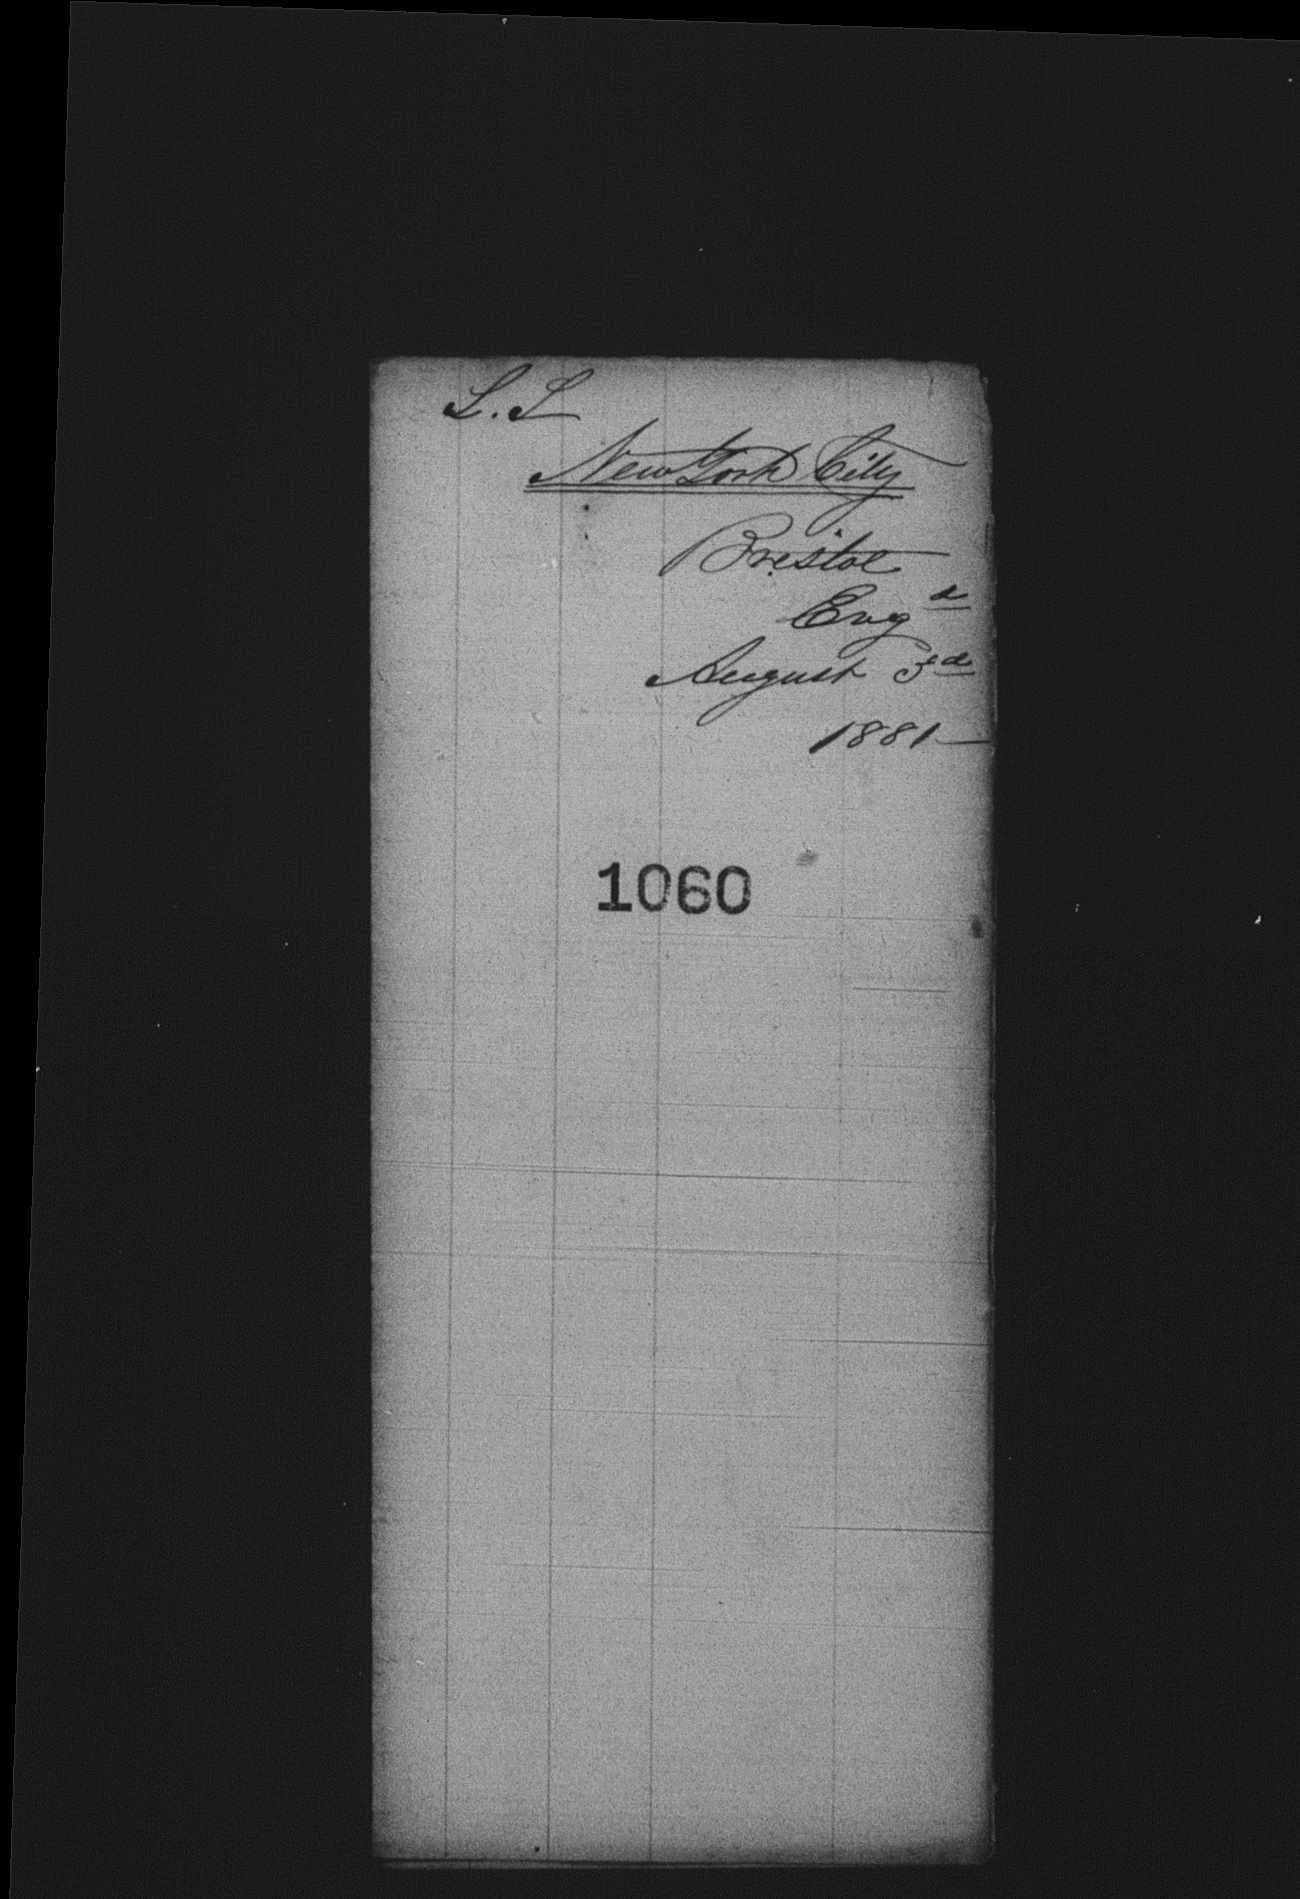 S.S
New York City
Bristol
Eng d
August 3rd
1881
1060